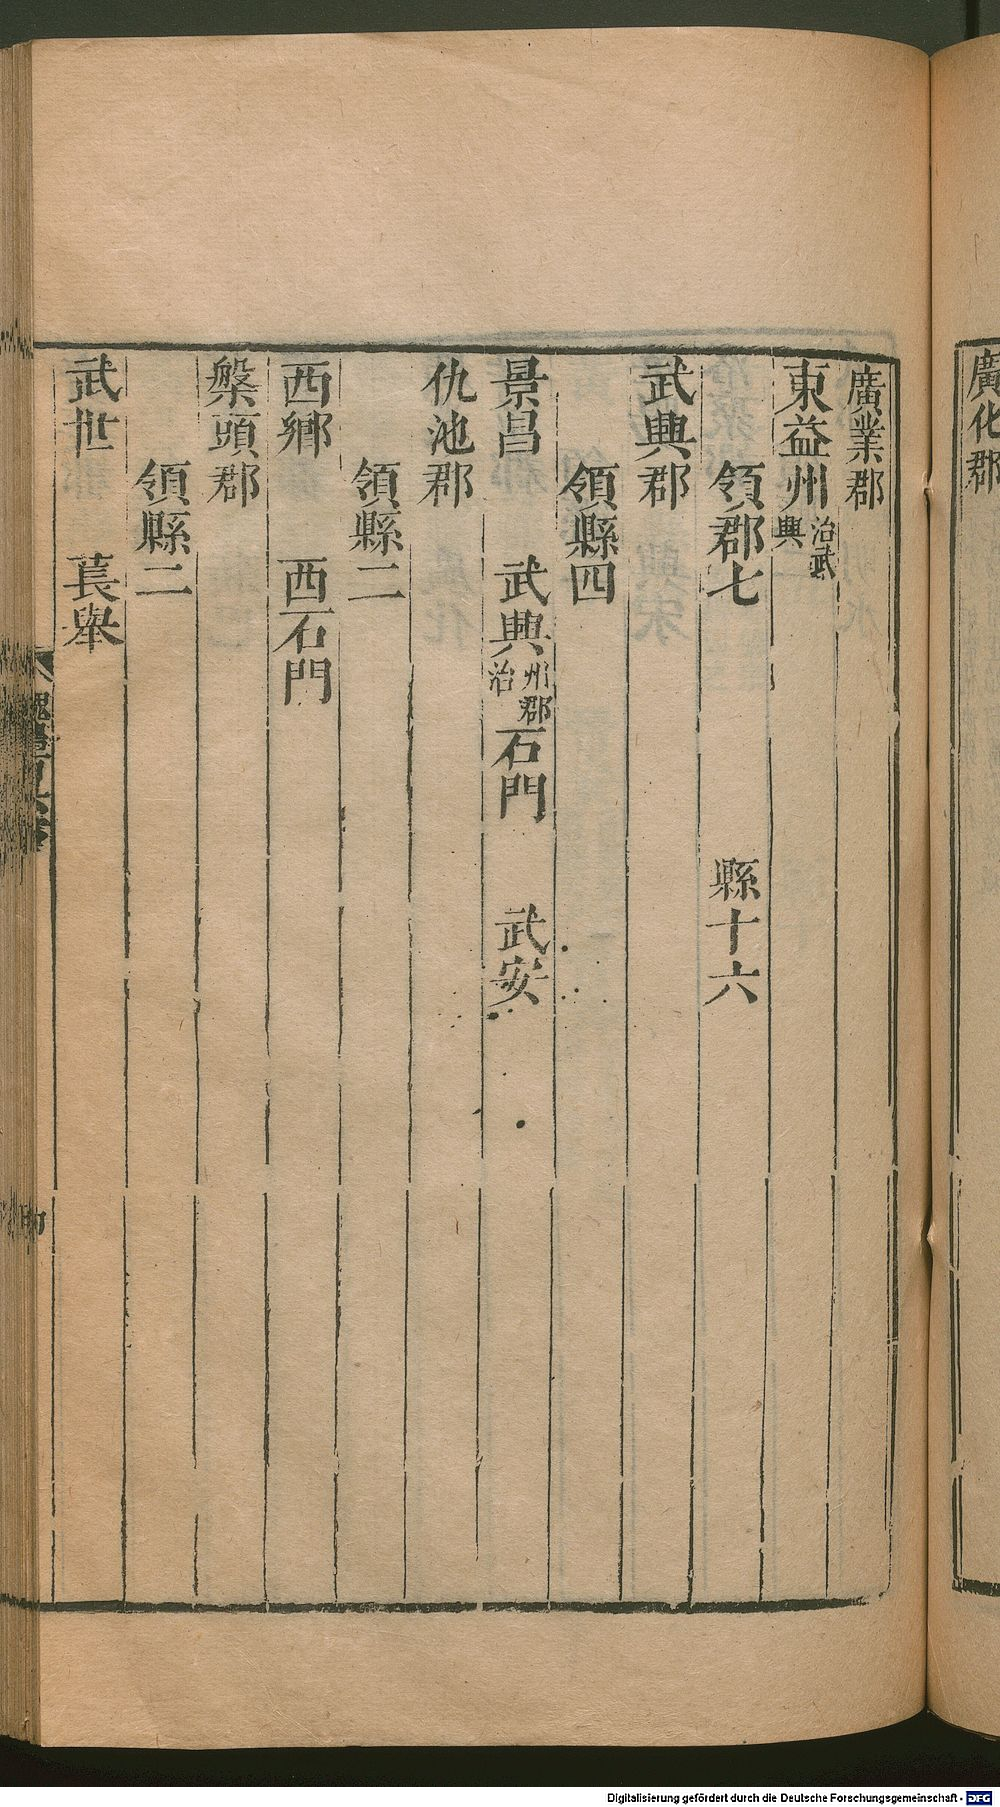 廣化郡
廣業郡
東益州治武興
領郡七 縣十六
武興郡
領縣四
景昌 武興州郡治 石門 武安
仇池郡
領縣二
西鄉 西石門
槃頭郡
領縣二
武世 萇舉
Digitalisierung gefördert durch die Deutsche Forschungsgemeinschaft - DFG